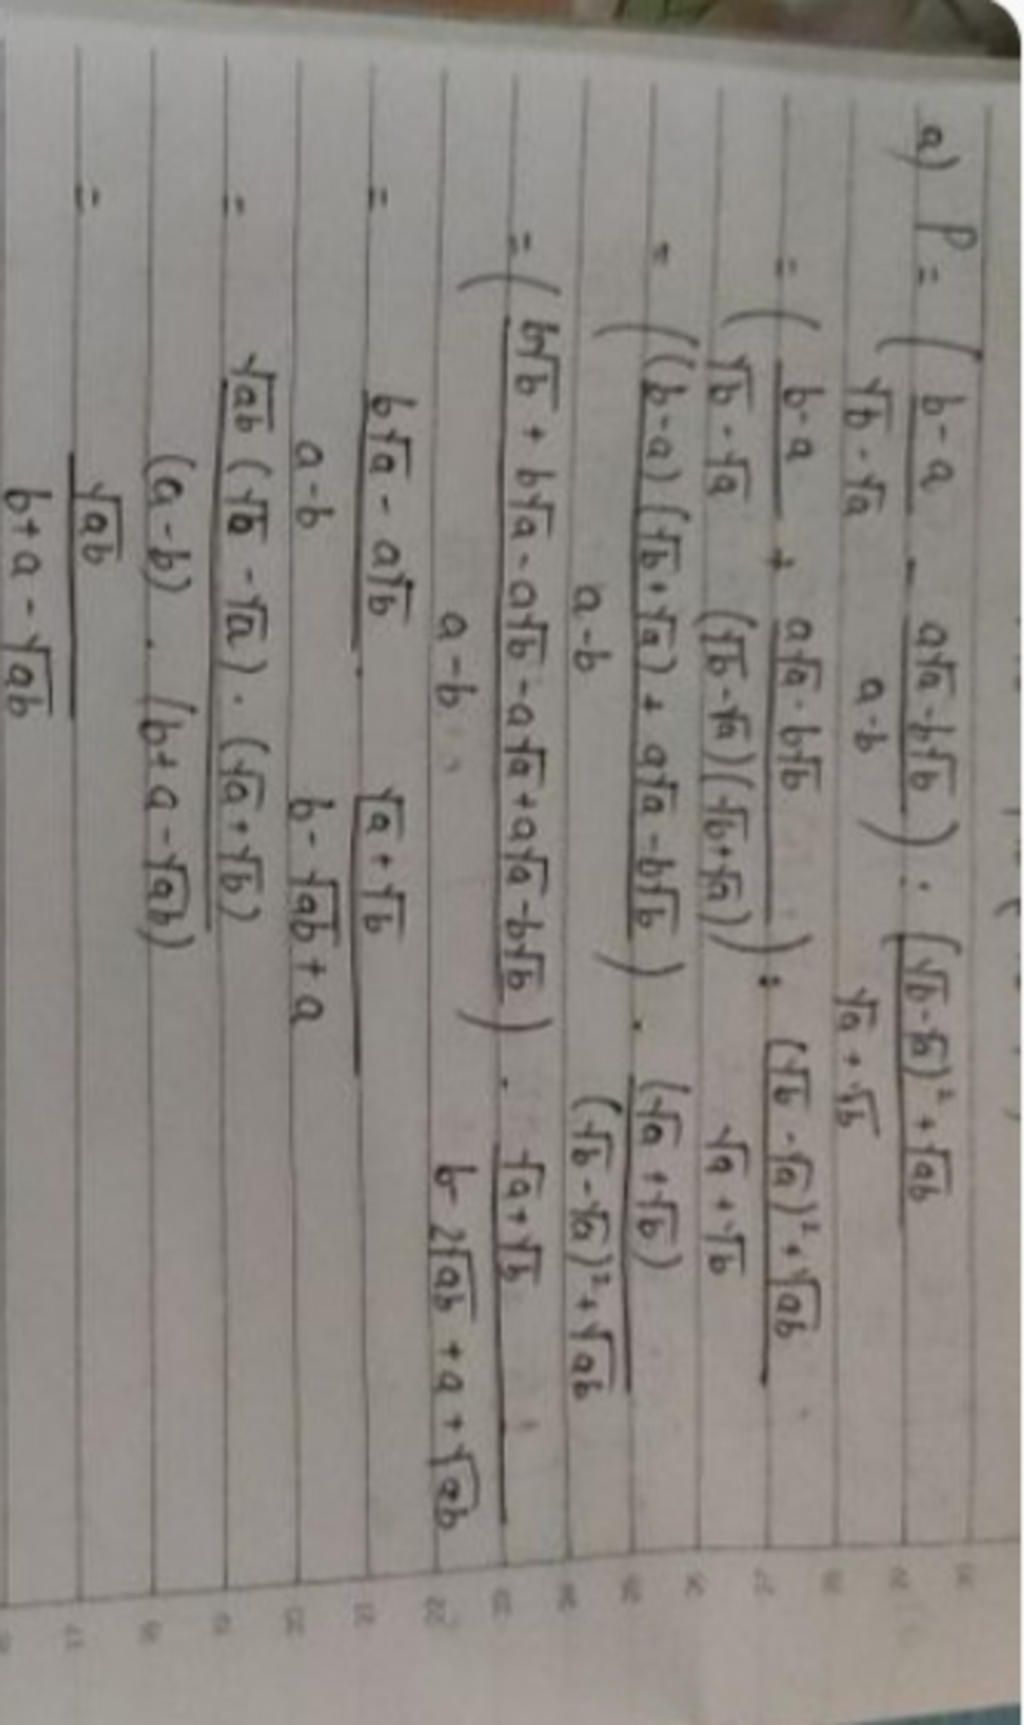 a) P = ( b-a / √b-√a - a√a-b√b / a-b ) : (√b-√a)² + √ab / √a+√b
= ( b-a / √b-√a + a√a-b√b / (√b-√a)(√b+√a) ) : (√b-√a)² + √ab / √a+√b
= ( (b-a)(√b+√a) + a√a-b√b / a-b ) . (√a+√b) / (√b-√a)² + √ab
= ( b√b + b√a - a√b - a√a + a√a - b√b / a-b ) . √a+√b / b-2√ab + a + √ab
= b√a - a√b / a-b . √a+√b / b-√ab + a
= √ab (√b-√a) . (√a+√b) / (a-b) . (b+a-√ab)
= √ab / b+a-√ab